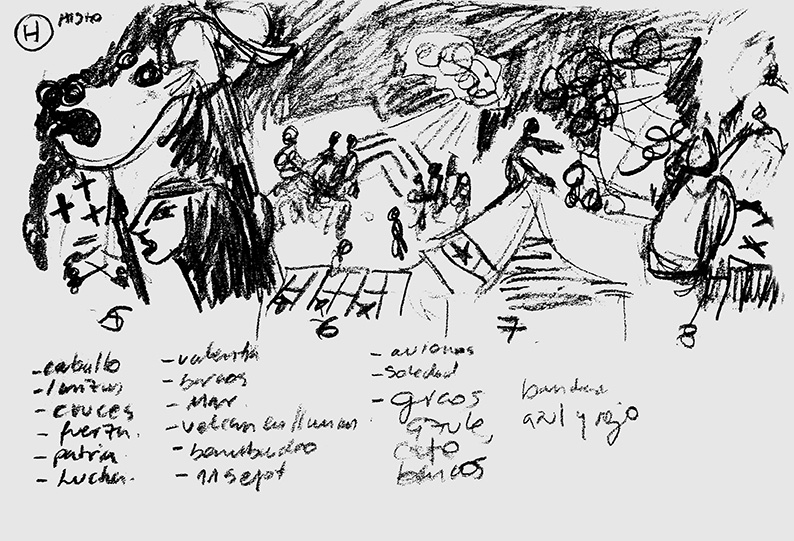 H
5
6
7
8
- caballo
- lanzas
- cruces
- fuerza.
- patria.
- Lucha.
- valentía
- barcos
- Mar.
- volcan en llamas
- bombardeo
- 11 sept
- aviones
- soledad
- grises
azules,
cielo
barcos
bandera
azul y rojo